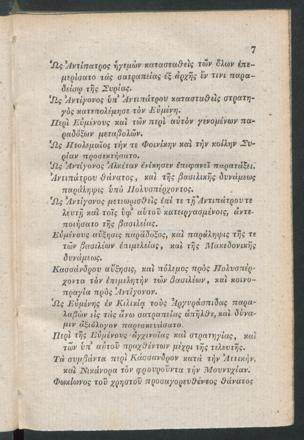 7
Ὡς Ἀντίπατρος ἡγεμὼν κατασταθεὶς τῶν ὅλων ἐπε-
μερίσατο τὰς σατραπείας ἐξ ἀρχῆς ἔν τινι παρα-
δείσῳ τῆς Συρίας.
Ὡς Ἀντίγονος ὑπ' Ἀντιπάτρου κατασταθεὶς στρατη-
γὸς κατεπολέμησε τὸν Εὐμένη.
Περὶ Εὐμένους καὶ τῶν περὶ αὐτὸν γενομένων πα-
ραδόξων μεταβολῶν.
Ὡς Πτολεμαῖος τήν τε Φοινίκην καὶ τὴν κοίλην Συ-
ρίαν προσεκτήσατο.
Ὡς Ἀντίγονος Ἀλκέταν ἐνίκησεν ἐπιφανεῖ παρατάξει.
Ἀντιπάτρου θάνατος, καὶ τῆς βασιλικῆς δυνάμεως
παράληψις ὑπὸ Πολυσπέρχοντος.
Ὡς Ἀντίγονος μετεωρισθεὶς ἐπί τε τῇ Ἀντιπάτρου τε-
λευτῇ καὶ τοῖς ὑφ' αὑτοῦ κατειργασμένοις, ἀντε-
ποιήσατο τῆς βασιλείας.
Εὐμένους αὔξησις παράδοξος, καὶ παράληψις τῆς τε
τῶν βασιλέων ἐπιμελείας, καὶ τῆς Μακεδονικῆς
δυνάμεως.
Κασσάνδρου αὔξησις, καὶ πόλεμος πρὸς Πολυσπέρ-
χοντα τὸν ἐπιμελητὴν τῶν βασιλέων, καὶ κοινο-
πραγία πρὸς Ἀντίγονον.
Ὡς Εὐμένης ἐν Κιλικίᾳ τοὺς Ἀργυράσπιδας παρα-
λαβὼν εἰς τὰς ἄνω σατραπείας ἀπῆλθε, καὶ δύνα-
μιν ἀξιόλογον παρεσκευάσατο.
Περὶ τῆς Εὐμένους ἀγχινοίας καὶ στρατηγίας, καὶ
τῶν ὑπ' αὐτοῦ πραχθέντων μέχρι τῆς τελευτῆς.
Τὰ συμβάντα περὶ Κάσσανδρον κατὰ τὴν Ἀττικὴν,
καὶ Νικάνορα τὸν φρουροῦντα τὴν Μουνυχίαν.
Φωκίωνος τοῦ χρηστοῦ προσαγορευθέντος θάνατος